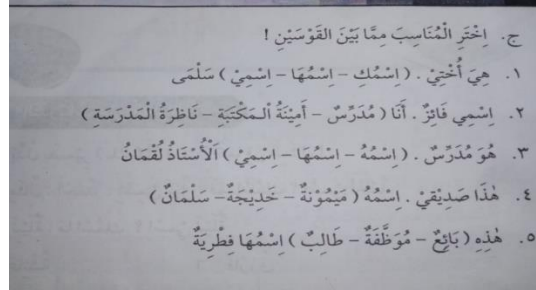 ج. اِخْتَرِ الْمُنَاسِبَ مِمَّا بَيْنَ القَوْسَيْنِ !
١. هِيَ أُخْتِيْ . (اِسْمُكِ – اِسْمُهَا – اِسْمِيْ ) سَلْمَى
٢. اِسْمِي فَائِزٌ . أَنَا ( مُدَرِّسٌ – أَمِيْنَةُ الْمَكْتَبَةِ – نَاظِرَةُ الْمَدْرَسَةِ )
٣. هُوَ مُدَرِّسٌ . (اِسْمُهُ – اِسْمُهَا – اِسْمِيْ ) اَلْأُسْتَاذُ لُقْمَانُ
٤. هٰذَا صَدِيْقِيْ . اِسْمُهُ ( مَيْمُوْنَةٌ – خَدِيْجَةٌ – سَلْمَانٌ )
٥. هٰذِهِ ( بَائِعٌ – مُوَظَّفَةٌ – طَالِبٌ ) اِسْمُهَا فِطْرِيَةٌ